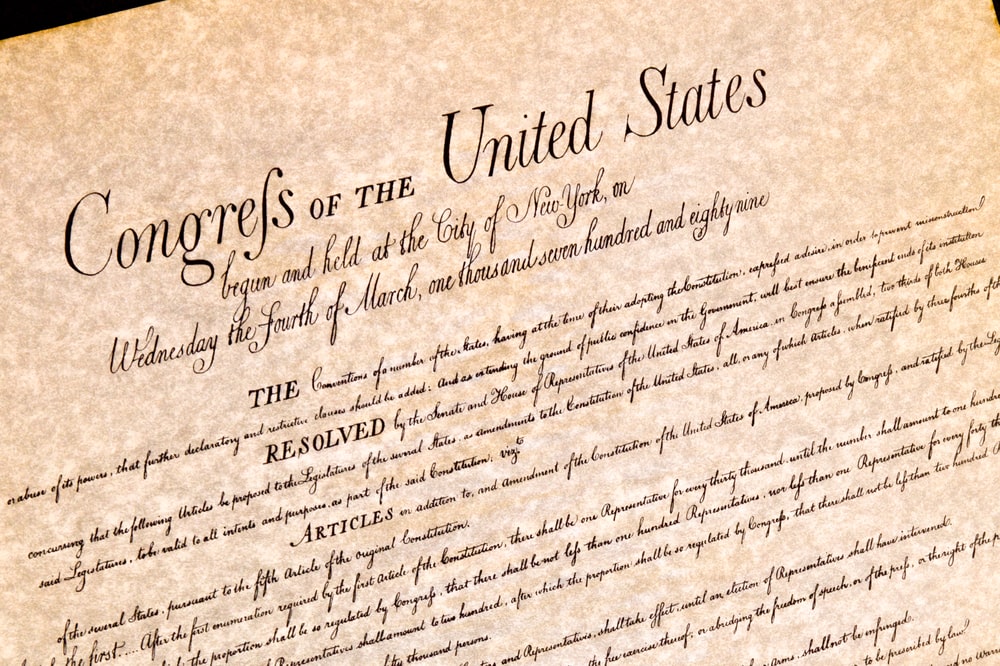 Congreſs OF THE United States
begun and held at the City of New-York, on
Wednesday the Fourth of March, one thousand seven hundred and eighty nine
THE Conventions of a number of the States, having at the time of their adopting the Constitution, expreſsed a desire, in order to prevent misconstruction
or abuse of its powers, that further declaratory and restrictive clauses should be added: And as extending the ground of public confidence in the Government, will best ensure the beneficent ends of its institution
RESOLVED by the Senate and House of Representatives of the United States of America, in Congreſs aſsembled, two thirds of both Houses
concurring that the following Articles be proposed to the Legislatures of the several States, as amendments to the Constitution of the United States, all, or any of which Articles, when ratified by three fourths of the
said Legislatures, to be valid to all intents and purposes, as part of the said Constitution; vizt
ARTICLES in addition to, and Amendment of the Constitution of the United States of America, proposed by Congreſs, and ratified by the Leg
of the several States, pursuant to the fifth Article of the original Constitution.
the first.... After the first enumeration required by the first Article of the Constitution, there shall be one Representative for every thirty thousand, until the number shall amount to one hundre
the proportion shall be so regulated by Congreſs, that there shall be not leſs than one hundred Representatives, nor leſs than one Representative for every forty th
Representatives shall amount to two hundred, after which the proportion shall be so regulated by Congreſs, that there shall not be leſs than two hundred
thousand persons.
and Representatives, shall take effect, until an election of Representatives shall have intervened.
the free exercise thereof, or abridging the freedom of speech, or of the preſs, or the right of the p
Arms, shall not be infringed.
to be prescribed by law.
no Warra